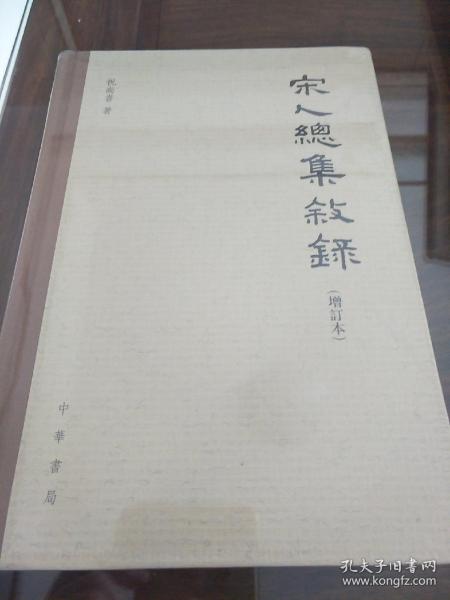 宋人總集敘錄
(增訂本)
祝尚書 著
中華書局
孔夫子旧书网
www.kongfz.com